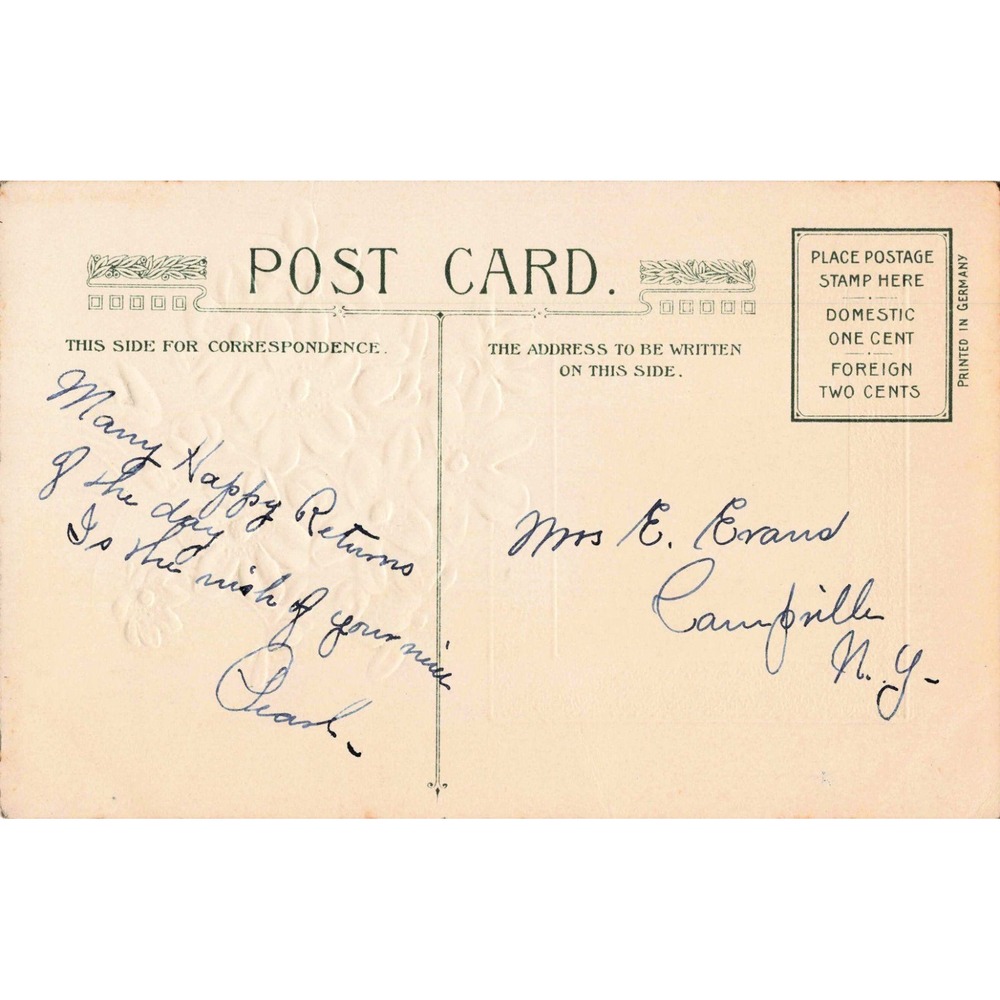 POST CARD.
THIS SIDE FOR CORRESPONDENCE.
THE ADDRESS TO BE WRITTEN
ON THIS SIDE.
PLACE POSTAGE
STAMP HERE
DOMESTIC
ONE CENT
FOREIGN
TWO CENTS
PRINTED IN GERMANY
Many Happy Returns
of the day
Is the wish of your niece
Pearl
Mrs E. Evans
Campville
N.Y-